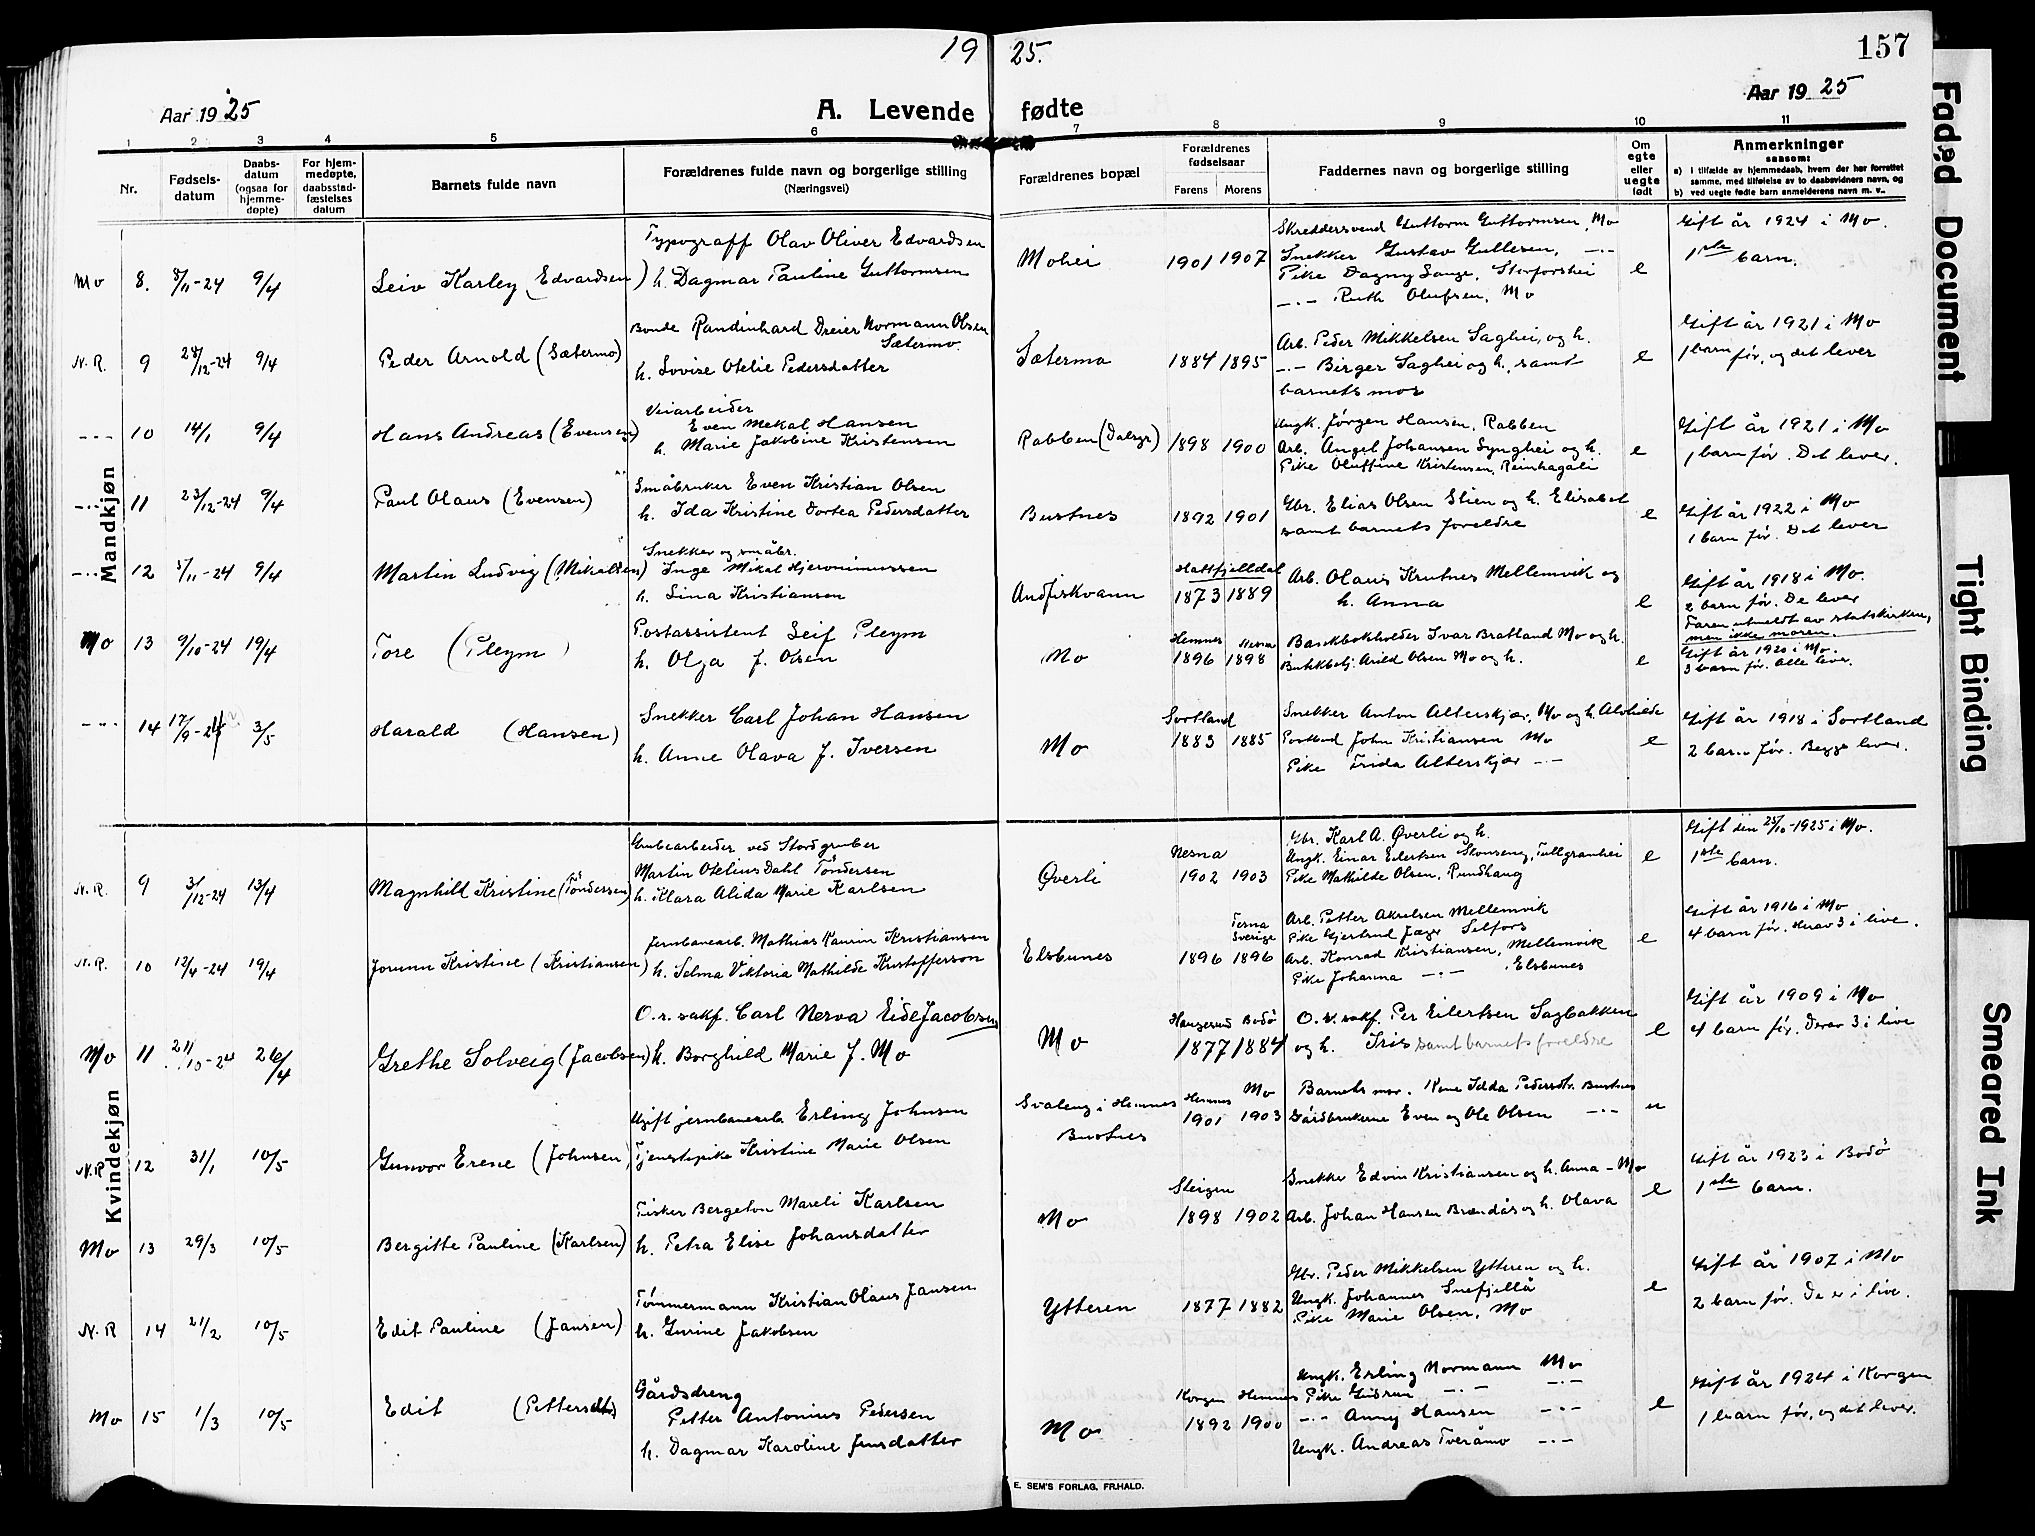 19 25.
157
Aar 1925
A. Levende fødte
Aar 1925
1 2 3 4 5 6 7 8 9 10 11
Nr.
Fødsels-
datum
Daabs-
datum
(ogsaa for
hjemme-
døpte)
For hjem-
medøpte,
daabsstad-
fæstelses
datum
Barnets fulde navn
Forældrenes fulde navn og borgerlige stilling
(Næringsvei)
Forældrenes bopæl
Forældrenes
fødselsaar
Farens Morens
Faddernes navn og borgerlige stilling
Om
egte
eller
uegte
født
Anmerkninger
saasom:
a) i tilfælde av hjemmedaab, hvem der har forrettet
samme, med tilføielse av to daabsvidners navn, og
b) ved uegte fødte barn anmelderens navn m. v..
Mandkjøn
Mo 8. 8/11-24 9/4 Leiv Karley (Edvardsen)
Typograff Olav Oliver Edvardsen
h. Dagmar Pauline Guttormsen
Mohei 1901 1907
Skreddersvend Guttorm Guttormsen, Mo
Snekker Gustav Gullesen, -·-
Pike Dagny Sauge, Storforshei
-·- Ruth Olufsen, Mo
e
Gift år 1924 i Mo.
1ste barn.
N.R. 9 28/12-24 9/4 Peder Arnold (Sætermo)
Bonde Randinhard Dreier Normann Olsen
Sætermo.
h. Lovise Otelie Pedersdatter
Sætermo 1884 1895
Arb. Peder Mikkelsen Saghei, og h.
-·- Birger Saghei og h., samt
barnets mor
e
Gift år 1921 i Mo
1 barn før, og det lever
-·- 10 14/1 9/4 Hans Andreas (Evensen)
Veiarbeider
Even Mekal Hansen
h. Marie Jakobine Kristensen
Rabben (Dalsgr) 1898 1900
Ungk. Jørgen Hansen, Rabben
Arb. Angel Johansen Lynghei og h.
Pike Oluffine Kristensen, Reinhagali
e
Gift år 1921 i Mo
1 barn før. Det lever.
-·- 11 23/12-24 9/4 Paul Olaus (Evensen)
Småbruker Even Kristian Olsen
h. Ida Kristine Dortea Pedersdatter
Bustnes 1892 1901
Gbr. Elias Olsen Stien og h. Elisabet
samt barnets foreldre
e
Gift år 1922 i Mo
1 barn før. Det lever
-·- 12 5/11-24 9/4 Martin Ludvig (Mikalsen)
Snekker og småbr.
Inge Mikal Hjeronimussen
h. Lina Kristiansen
Andfiskvann
Hattfjelldal
1873 1889
Arb. Olaus Krutnes Mellemvik og
h. Anna
e
Gift år 1918 i Mo.
2 barn før. De lever
Faren utmeldt av statskirken,
men ikke moren.
Mo 13 9/10-24 19/4 Tore (Pleym)
Postassistent Leif Pleym
h. Olga f. Olsen
Mo
Hemnes Nesna
1896 1898
Bankbokholder Ivar Bratland Mo og h.
Butikkbetj. Arild Olsen Mo og h.
e
Gift år 1920 i Mo.
3 barn før. Alle lever.
-·- 14 17/9-24 3/5 Harald (Hansen)
Snekker Carl Johan Hansen
h. Anne Olava f. Iversen
Mo
Sortland
1883 1885
Snekker Anton Alterskjær, Mo og h. Alvhilde
Postbud John Kristiansen Mo
Pike Frida Alterskjær -·-
e
Gift år 1918 i Sortland
2 barn før. Begge lever.
Kvindekjøn
N.R. 9 3/12-24 13/4 Magnhild Kristine (Tøndersen)
Grubearbeider ved Stordgruber
Martin Otelius Dahl Tøndersen
h. Klara Alida Marie Karlsen
Øverli
Nesna
1902 1903
Gbr. Karl A. Øverli og h.
Ungk. Einar Eilertsen Stenseng, Tullgranhei
Pike Mathilde Olsen, Rundhaug
e
Gift den 25/10-1925 i Mo.
1ste barn.
N.R. 10 12/4-24 19/4 Jorunn Kristine (Kristiansen)
Jernbanearb. Mathias Kaurin Kristiansen
h. Selma Viktoria Mathilde Kristofferson
Elsbunes
Terna
Sverige
1896 1896
Arb. Petter Akselsen Mellemvik
Pike Gjertrud Jæger Selfors
Arb. Konrad Kristiansen, Mellemvik
Pike Johanna -·- , Elsbunes
e
Gift år 1916 i Mo
4 barn før. Herav 3 i live.
Mo 11 21/10-24 26/4 Grethe Solveig (Jacobsen)
O.r.sakf. Carl Nerva Eide Jacobsen
h. Borghild Marie f. Mo
Mo
Haugesund Bodø
1877 1884
O.r.sakf. Per Eilertsen Sagbakken
og h. Iris samt barnets foreldre
e
Gift år 1909 i Mo
4 barn før. Derav 3 i live
N.R 12 31/1 10/5 Gunvor Erene (Johnsen)
Ugift jernbanearb. Erling Johnsen
Tjenestepike Kristine Marie Olsen
Svaleng i Hemnes
Bustnes
Hemnes Mo
1901 1903
Barnets mor. Kone Idda Pedersdtr. Bustnes
Gårdbrukerne Even og Ole Olsen -·-
u
Mo 13 29/3 10/5 Bergitte Pauline (Karlsen)
Fisker Bergeton Mareli Karlsen
h. Petra Elise Johansdatter
Mo
Steigen
1898 1902
Snekker Edvin Kristiansen og h. Anna - Mo
Arb. Johan Hansen Brændås og h. Olava
e
Gift år 1923 i Bodø
1ste barn.
N.R 14 21/2 10/5 Edit Pauline (Jansen)
Tømmermann Kristian Olaus Jansen
h. Gurine Jakobsen
Ytteren 1877 1882
Gbr. Peder Mikkelsen Ytteren og h.
Ungk. Johannes Snefjellå
Pike Marie Olsen, Mo
e
Gift år 1907 i Mo
2 barn før. De er i live.
Mo 15 1/3 10/5 Edit
Gårdsdreng
Petter Antonius Pedersen
h. Dagmar Karoline Jensdatter
Mo
Korgen Hemnes
1892 1900
Ungk. Erling Normann Mo
Pike Gudrun -·- -·-
-·- Anny Hansen -·-
Ungk. Andreas Tveråmo -·-
e
Gift år 1924 i Korgen
1 barn før, og det lever.
E. SEM'S FORLAG, FR.HALD.
Faded Document
Tight Binding
Smeared Ink